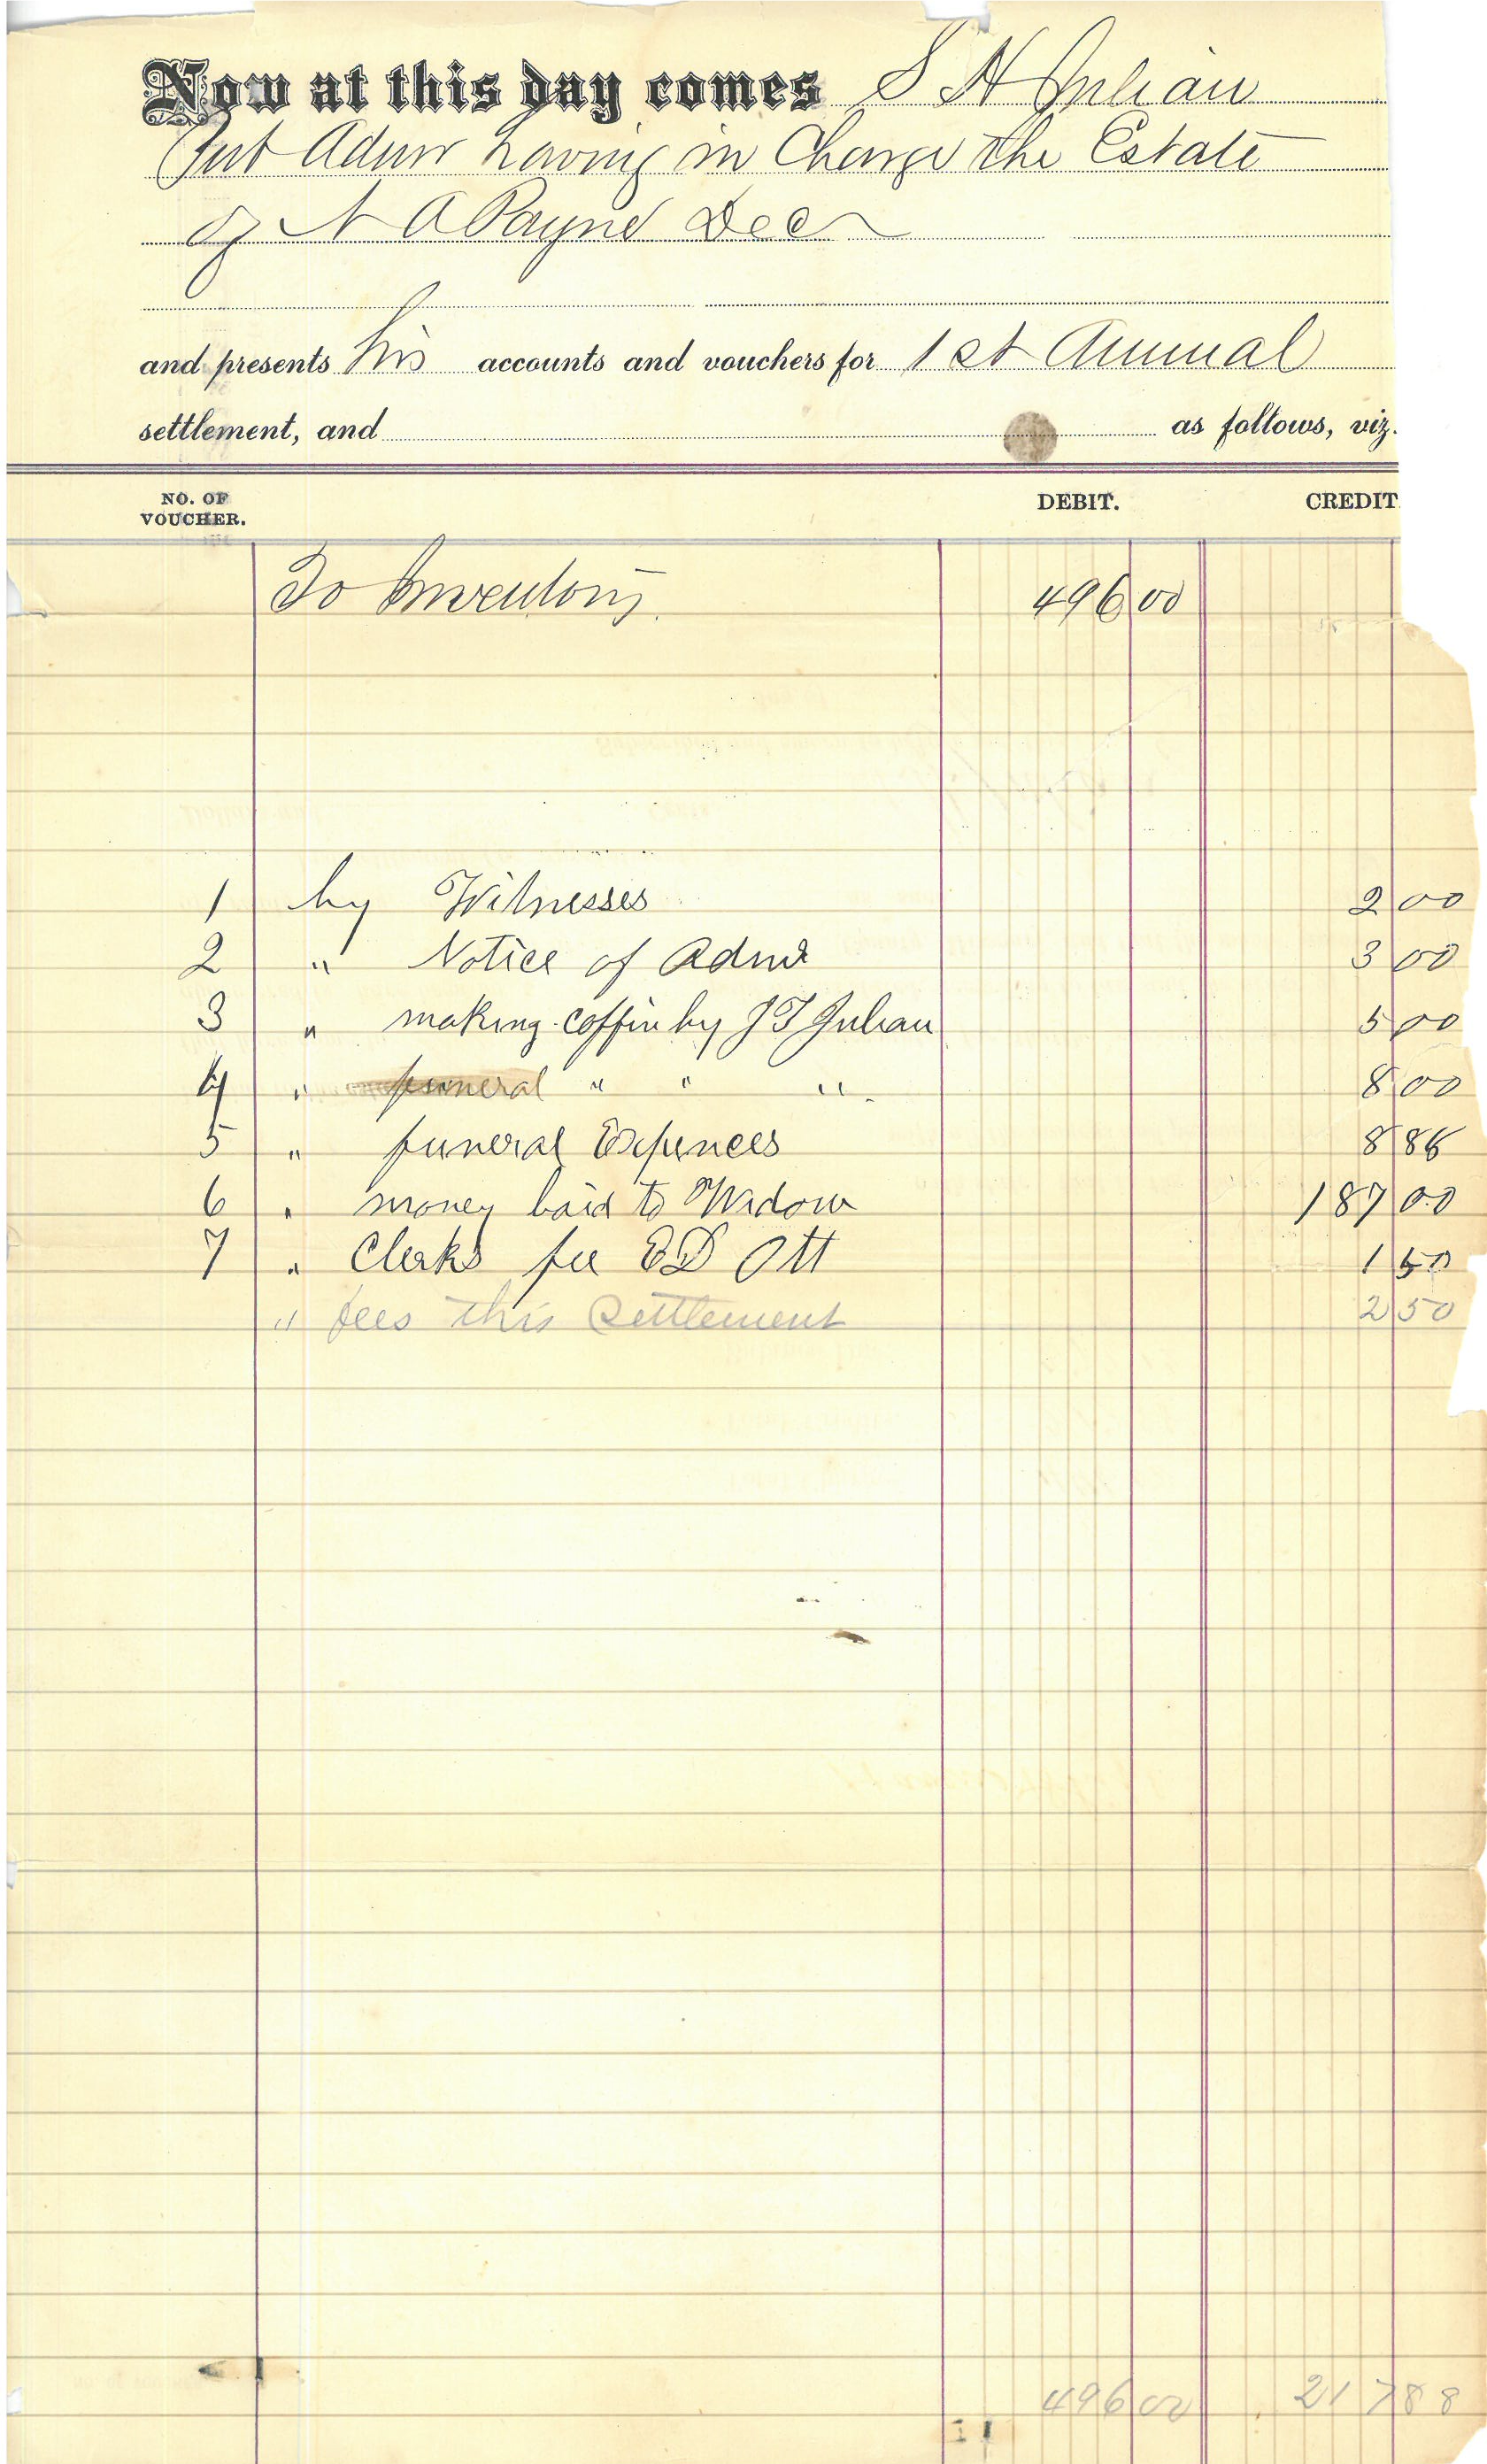 Now at this day comes S H Julian
Pub Admr having in Charge the Estate
of N A Payne Dec
and presents his accounts and vouchers for 1st Annual
settlement, and as follows, viz.
NO. OF VOUCHER. DEBIT. CREDIT
To Inventory. 496 00
1 by Witnesses 2 00
2 " Notice of Admr 3 00
3 " making coffin by J T Julian 5 00
4 " funeral " " " 8 00
5 " funeral Expences 8 88
6 " money paid to Widow 187 00
7 " Clerks fee E D Ott 1 50
" fees this Settlement 2 50
496 00 217 88